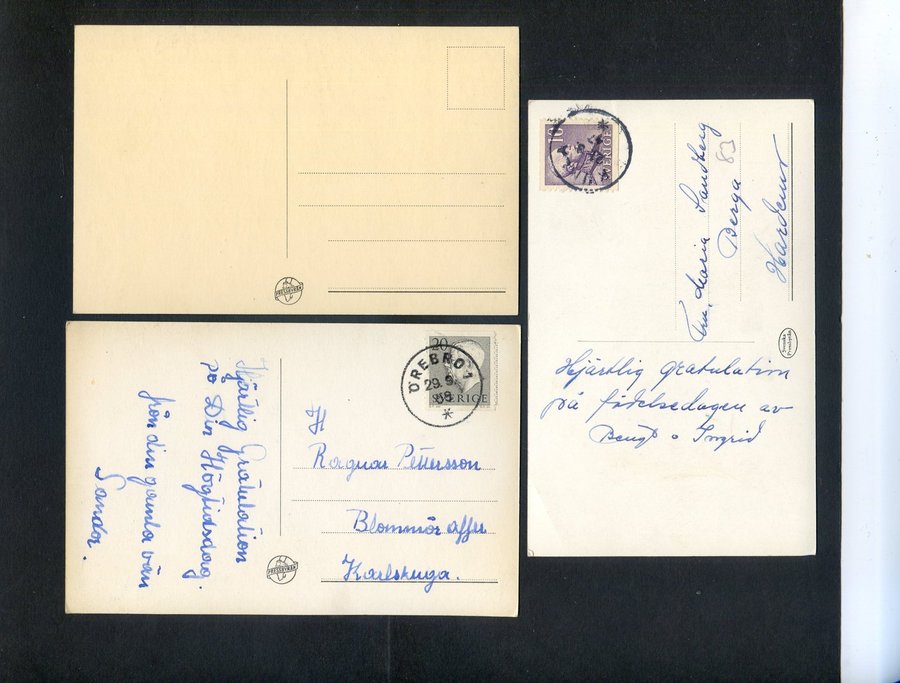 PRESSBYRÅN
20
ÖREBRO 1
29. 9.
SVERIGE
H
Ragnar Pettersson
Blommor affu
Karlskuga.
Hjärtlig Gratulation
på Din Högtidsdag.
från din gamla vän
Sandor.
PRESSBYRÅN
10
SVERIGE
Maria Sandberg
Berga
83
Svenska
Pressbyrån
Hjärtlig gratulation
på födelsedagen av
Bengt o Ingrid